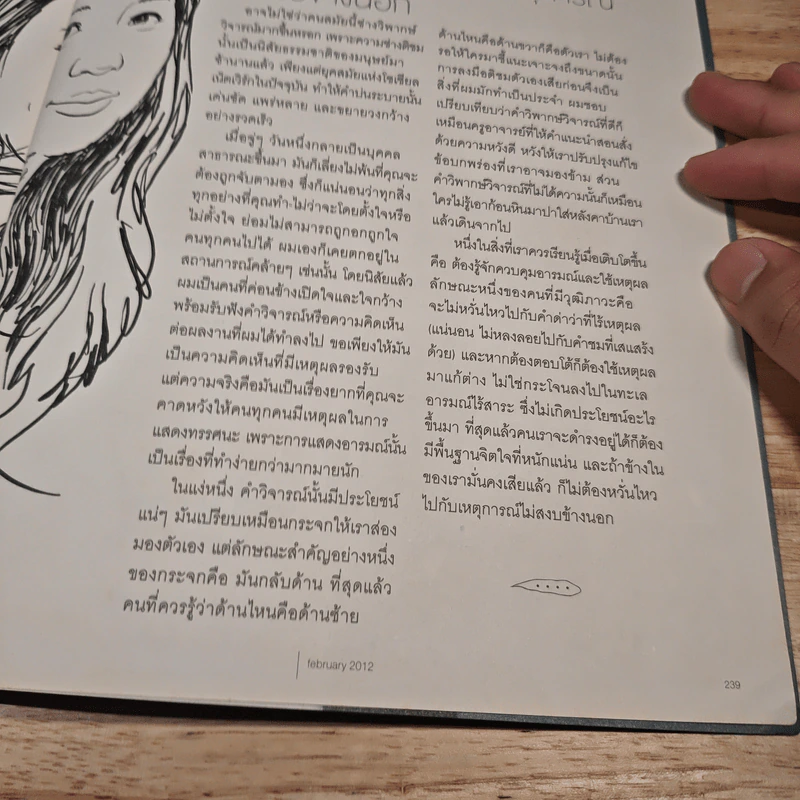 อาจไม่ใช่ว่าคนสมัยนี้ช่างวิพากษ์
วิจารณ์มากขึ้นหรอก เพราะความช่างติชม
นั้นเป็นนิสัยธรรมชาติของมนุษย์มา
ช้านานแล้ว เพียงแต่ยุคสมัยแห่งโซเชียล
เน็ตเวิร์กในปัจจุบัน ทำให้คำบ่นระบายนั้น
เด่นชัด แพร่หลาย และขยายวงกว้าง
อย่างรวดเร็ว
เมื่อจู่ๆ วันหนึ่งกลายเป็นบุคคล
สาธารณะขึ้นมา มันก็เลี่ยงไม่พ้นที่คุณจะ
ต้องถูกจับตามอง ซึ่งก็แน่นอนว่าทุกสิ่ง
ทุกอย่างที่คุณทำ ไม่ว่าจะโดยตั้งใจหรือ
ไม่ตั้งใจ ย่อมไม่สามารถถูกอกถูกใจ
คนทุกคนไปได้ ผมเองก็เคยตกอยู่ใน
สถานการณ์คล้ายๆ เช่นนั้น โดยนิสัยแล้ว
ผมเป็นคนที่ค่อนข้างเปิดใจและใจกว้าง
พร้อมรับฟังคำวิจารณ์หรือความคิดเห็น
ต่อผลงานที่ผมได้ทำลงไป ขอเพียงให้มัน
เป็นความคิดเห็นที่มีเหตุผลรองรับ
แต่ความจริงคือมันเป็นเรื่องยากที่คุณจะ
คาดหวังให้คนทุกคนมีเหตุผลในการ
แสดงทรรศนะ เพราะการแสดงอารมณ์นั้น
เป็นเรื่องที่ทำง่ายกว่ามากมายนัก
ในแง่หนึ่ง คำวิจารณ์นั้นมีประโยชน์
แน่ๆ มันเปรียบเหมือนกระจกให้เราส่อง
มองตัวเอง แต่ลักษณะสำคัญอย่างหนึ่ง
ของกระจกคือ มันกลับด้าน ที่สุดแล้ว
คนที่ควรรู้ว่าด้านไหนคือด้านซ้าย
ด้านไหนคือด้านขวาก็คือตัวเรา ไม่ต้อง
รอให้ใครมาชี้แนะเจาะจงถึงขนาดนั้น
การลงมือติชมตัวเองเสียก่อนจึงเป็น
สิ่งที่ผมมักทำเป็นประจำ ผมชอบ
เปรียบเทียบว่าคำวิพากษ์วิจารณ์ที่ดีก็
เหมือนครูอาจารย์ที่ให้คำแนะนำสอนสั่ง
ด้วยความหวังดี หวังให้เราปรับปรุงแก้ไข
ข้อบกพร่องที่เราอาจมองข้าม ส่วน
คำวิพากษ์วิจารณ์ที่ไม่ได้ความนั้นก็เหมือน
ใครไม่รู้เอาก้อนหินมาปาใส่หลังคาบ้านเรา
แล้วเดินจากไป
หนึ่งในสิ่งที่เราควรเรียนรู้เมื่อเติบโตขึ้น
คือ ต้องรู้จักควบคุมอารมณ์และใช้เหตุผล
ลักษณะหนึ่งของคนที่มีวุฒิภาวะคือ
จะไม่หวั่นไหวไปกับคำด่าว่าที่ไร้เหตุผล
(แน่นอน ไม่หลงลอยไปกับคำชมที่เสแสร้ง
ด้วย) และหากต้องตอบโต้ก็ต้องใช้เหตุผล
มาแก้ต่าง ไม่ใช่กระโจนลงไปในทะเล
อารมณ์ไร้สาระ ซึ่งไม่เกิดประโยชน์อะไร
ขึ้นมา ที่สุดแล้วคนเราจะดำรงอยู่ได้ก็ต้อง
มีพื้นฐานจิตใจที่หนักแน่น และถ้าข้างใน
ของเรามั่นคงเสียแล้ว ก็ไม่ต้องหวั่นไหว
ไปกับเหตุการณ์ไม่สงบข้างนอก
february 2012
239